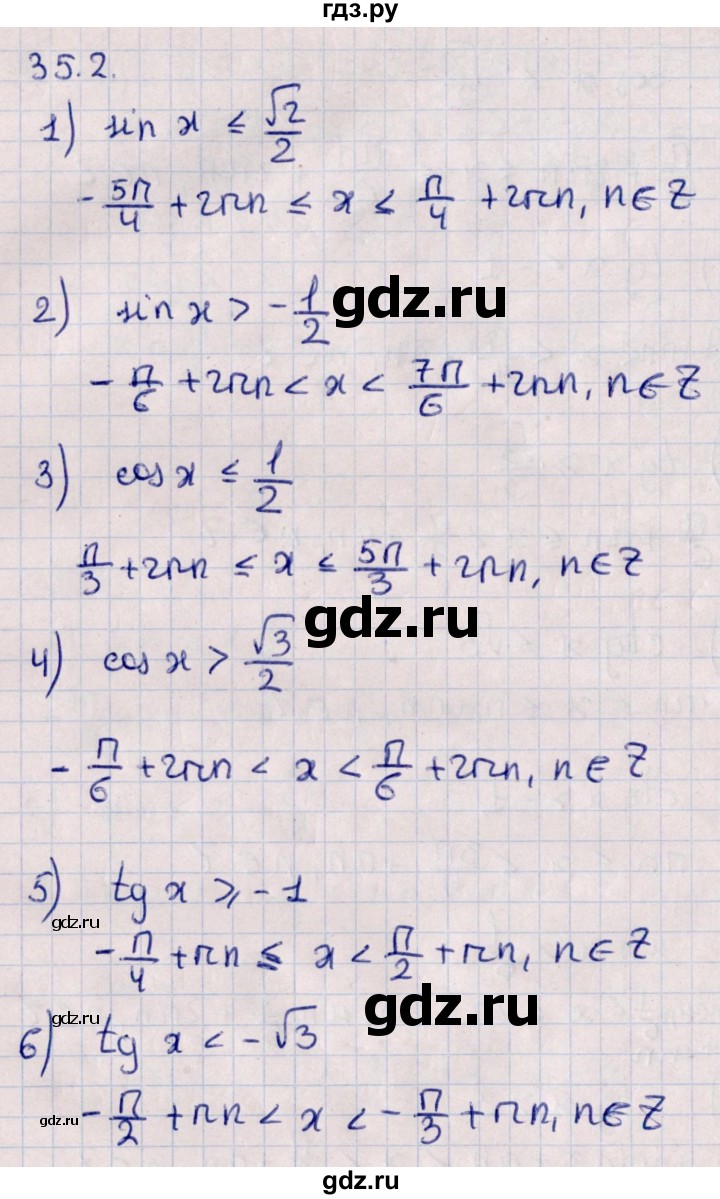 гдз.ру
35.2.
1) sin x ≤ √2/2
-5π/4 + 2πn ≤ x ≤ π/4 + 2πn, n ∈ Z
gdz.ru
2) sin x > -1/2
-π/6 + 2πn < x < 7π/6 + 2πn, n ∈ Z
3) cos x ≤ 1/2
π/3 + 2πn ≤ x ≤ 5π/3 + 2πn, n ∈ Z
gdz.ru
4) cos x > √3/2
-π/6 + 2πn < x < π/6 + 2πn, n ∈ Z
5) tg x ≥ -1
gdz.ru
-π/4 + πn ≤ x < π/2 + πn, n ∈ Z
gdz.ru
gdz.ru
6) tg x < -√3
-π/2 + πn < x < -π/3 + πn, n ∈ Z
gdz.ru
gdz.ru